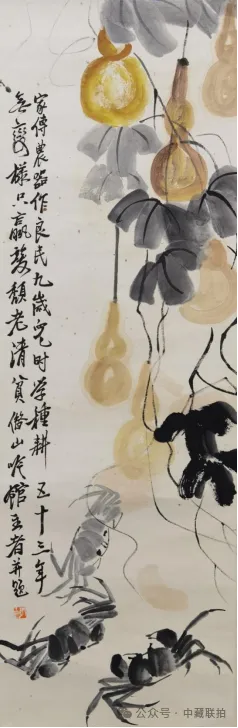 家傳農器作良民九歲兒时学種耕 五十三年
無變樣只贏老清貧借山吟館主者并題
公众号 · 中藏联拍